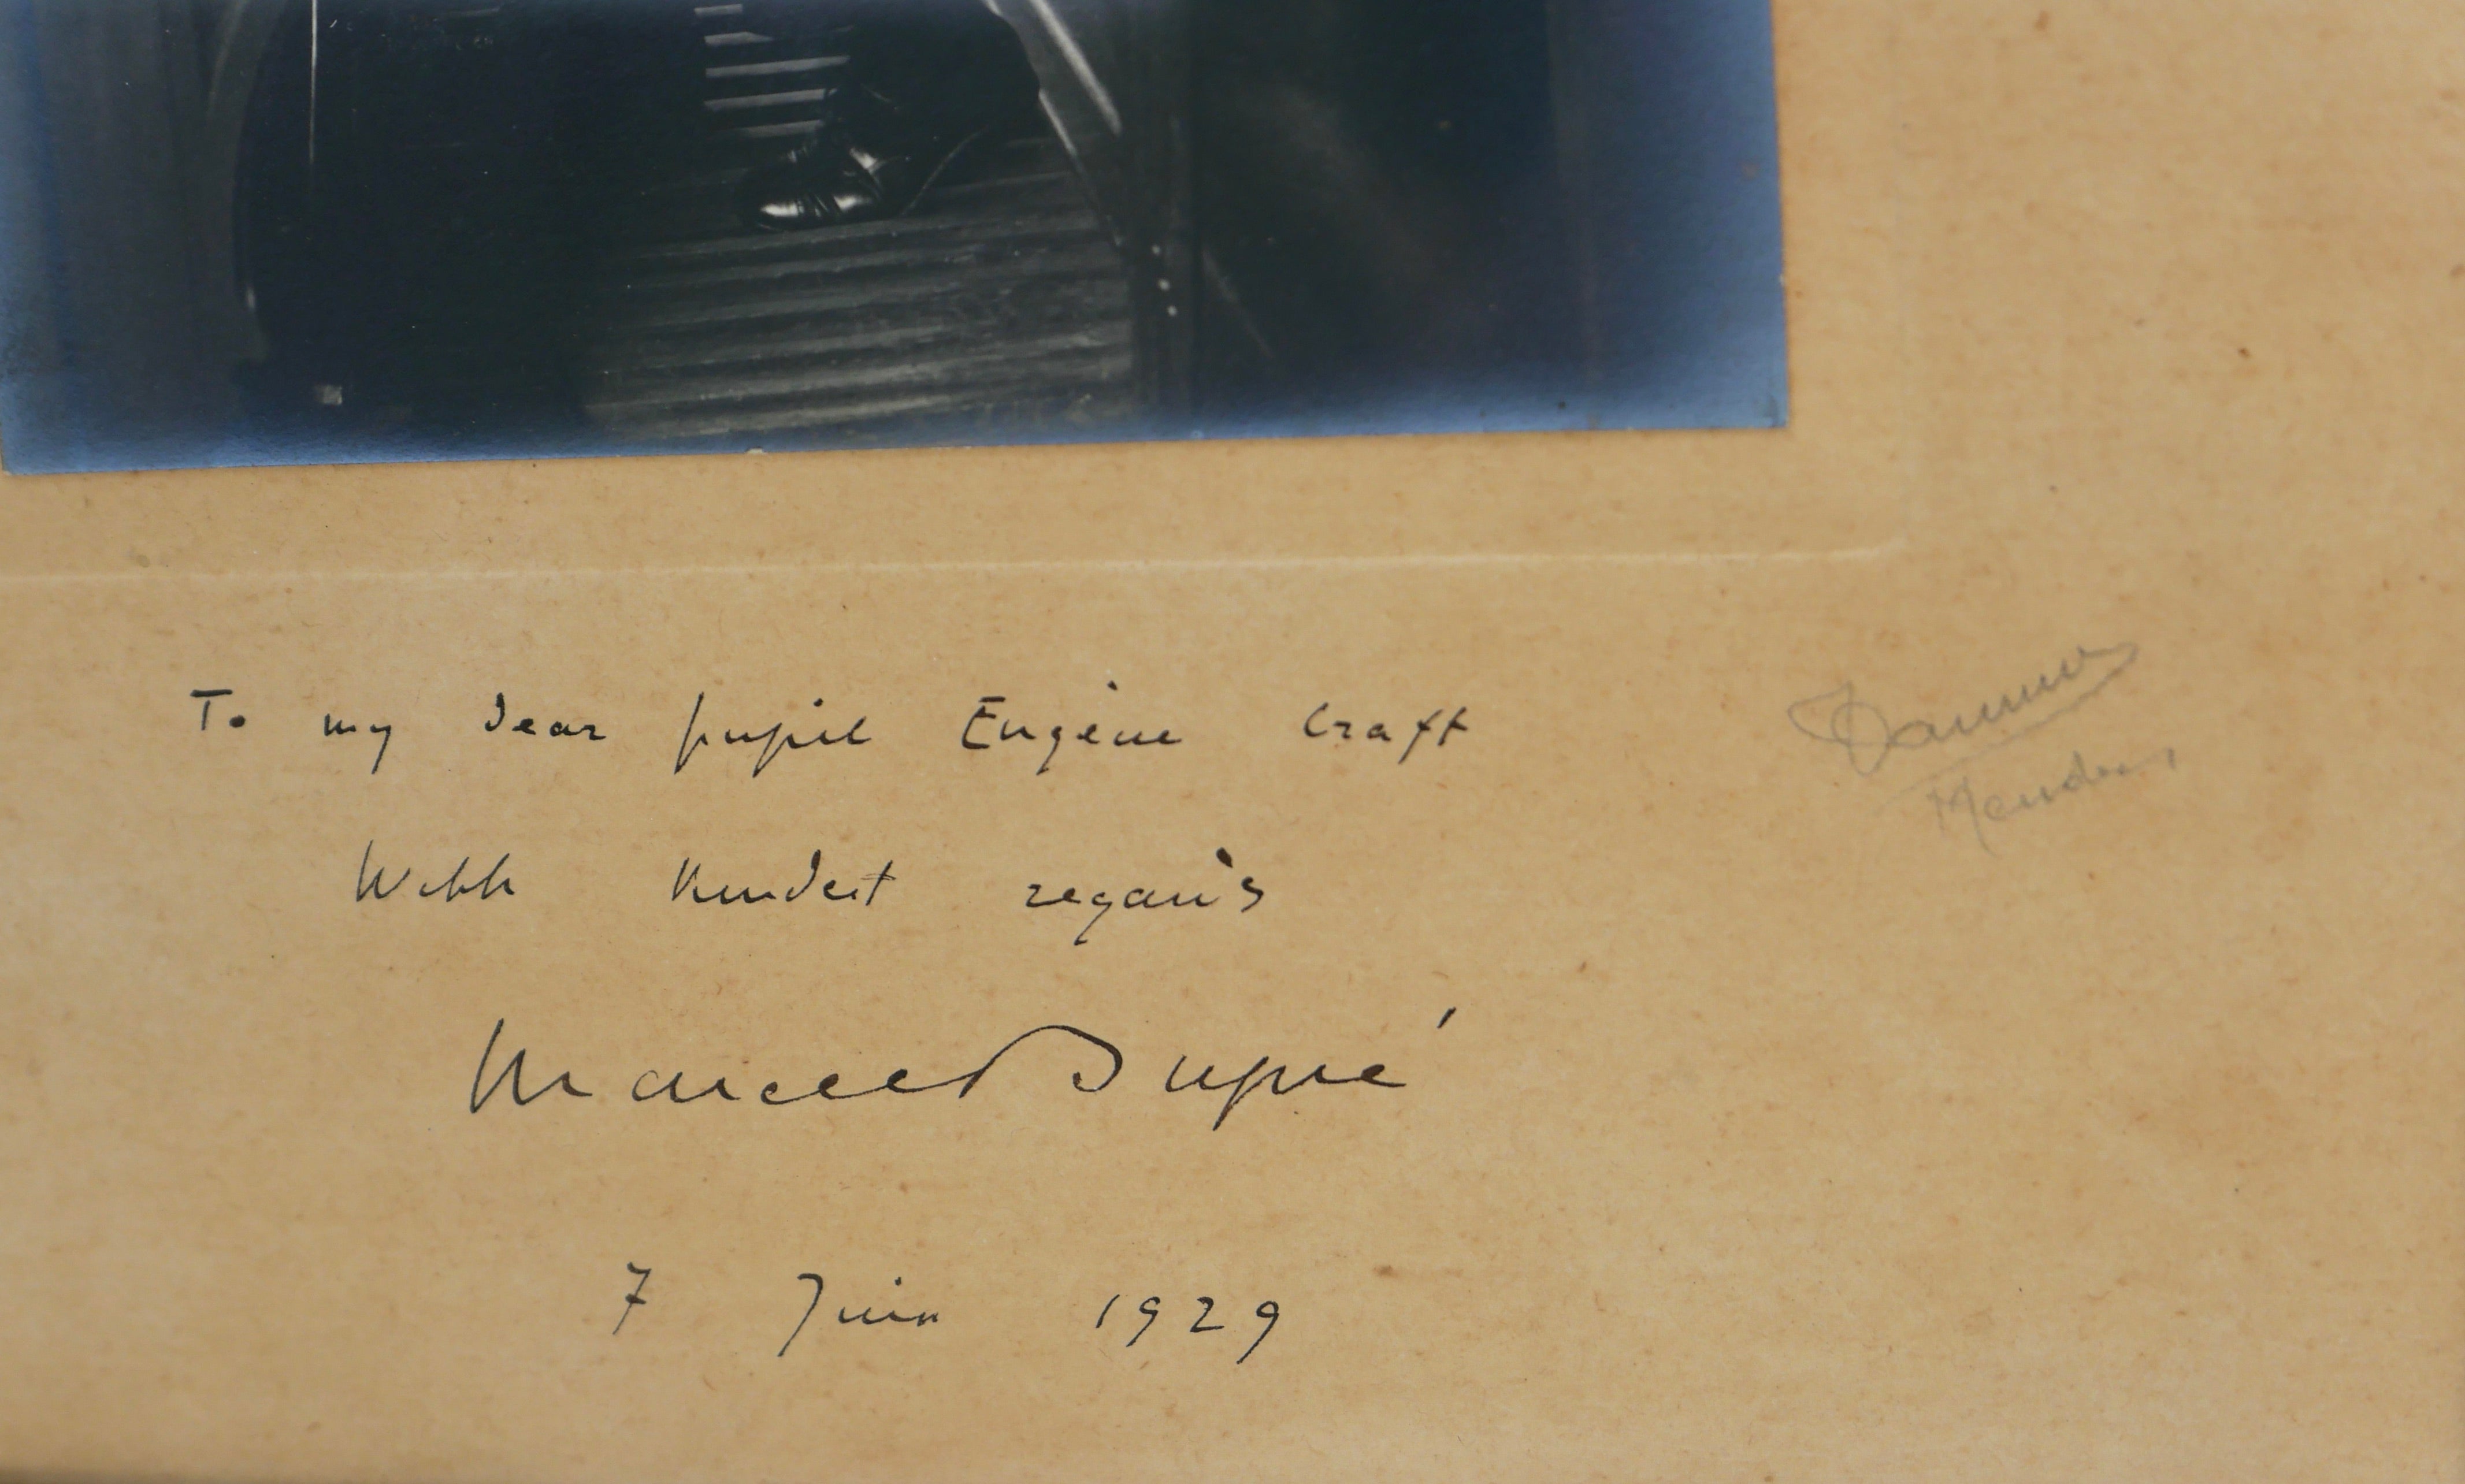 To my dear pupil Eugène Craft
With kindest regards
Marcel Dupré
7 Juin 1929